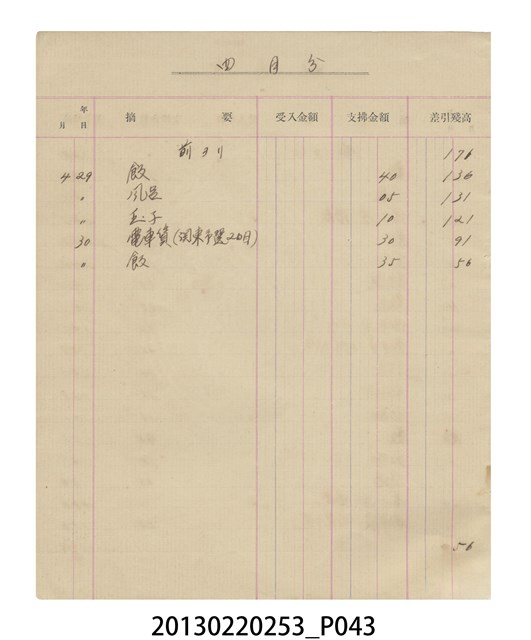 四月分
年 月 日 摘要 受入金額 支拂金額 差引残高
前ヨリ 176
4 29 飯 40 136
〃 風呂 05 131
〃 玉子 10 121
30 電車賃(関東予選20日) 30 91
〃 飯 35 56
56
20130220253_P043